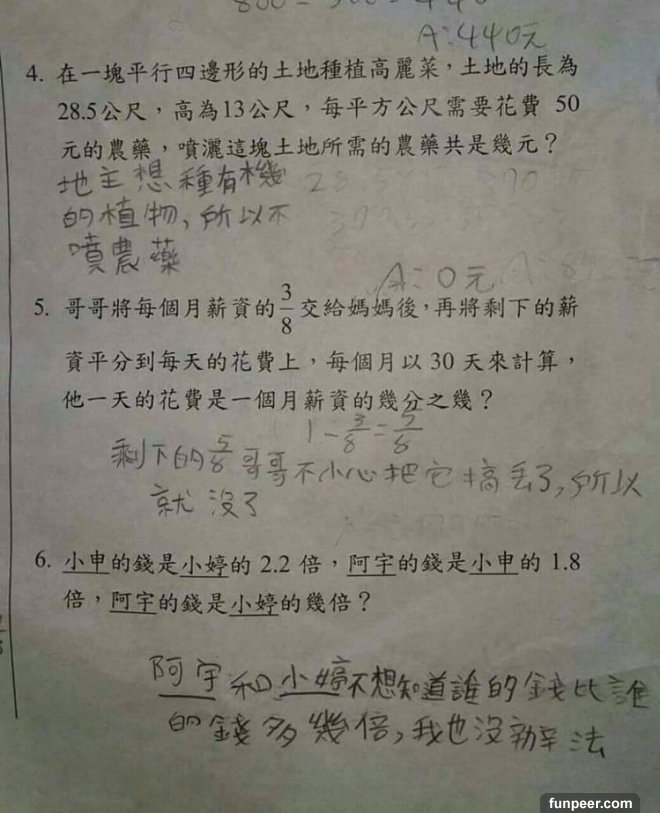 A:440元
4. 在一塊平行四邊形的土地種植高麗菜，土地的長為
28.5公尺，高為13公尺，每平方公尺需要花費 50
元的農藥，噴灑這塊土地所需的農藥共是幾元？
地主想種有機
的植物，所以不
噴農藥
A：0元
5. 哥哥將每個月薪資的3/8交給媽媽後，再將剩下的薪
資平分到每天的花費上，每個月以 30 天來計算，
他一天的花費是一個月薪資的幾分之幾？
1-3/8=5/8
剩下的5/8哥哥不小心把它搞丟了，所以
就沒了
6. 小申的錢是小婷的 2.2 倍，阿宇的錢是小申的 1.8
倍，阿宇的錢是小婷的幾倍？
阿宇和小婷不想知道誰的錢比誰
的錢多幾倍，我也沒辦法
funpeer.com